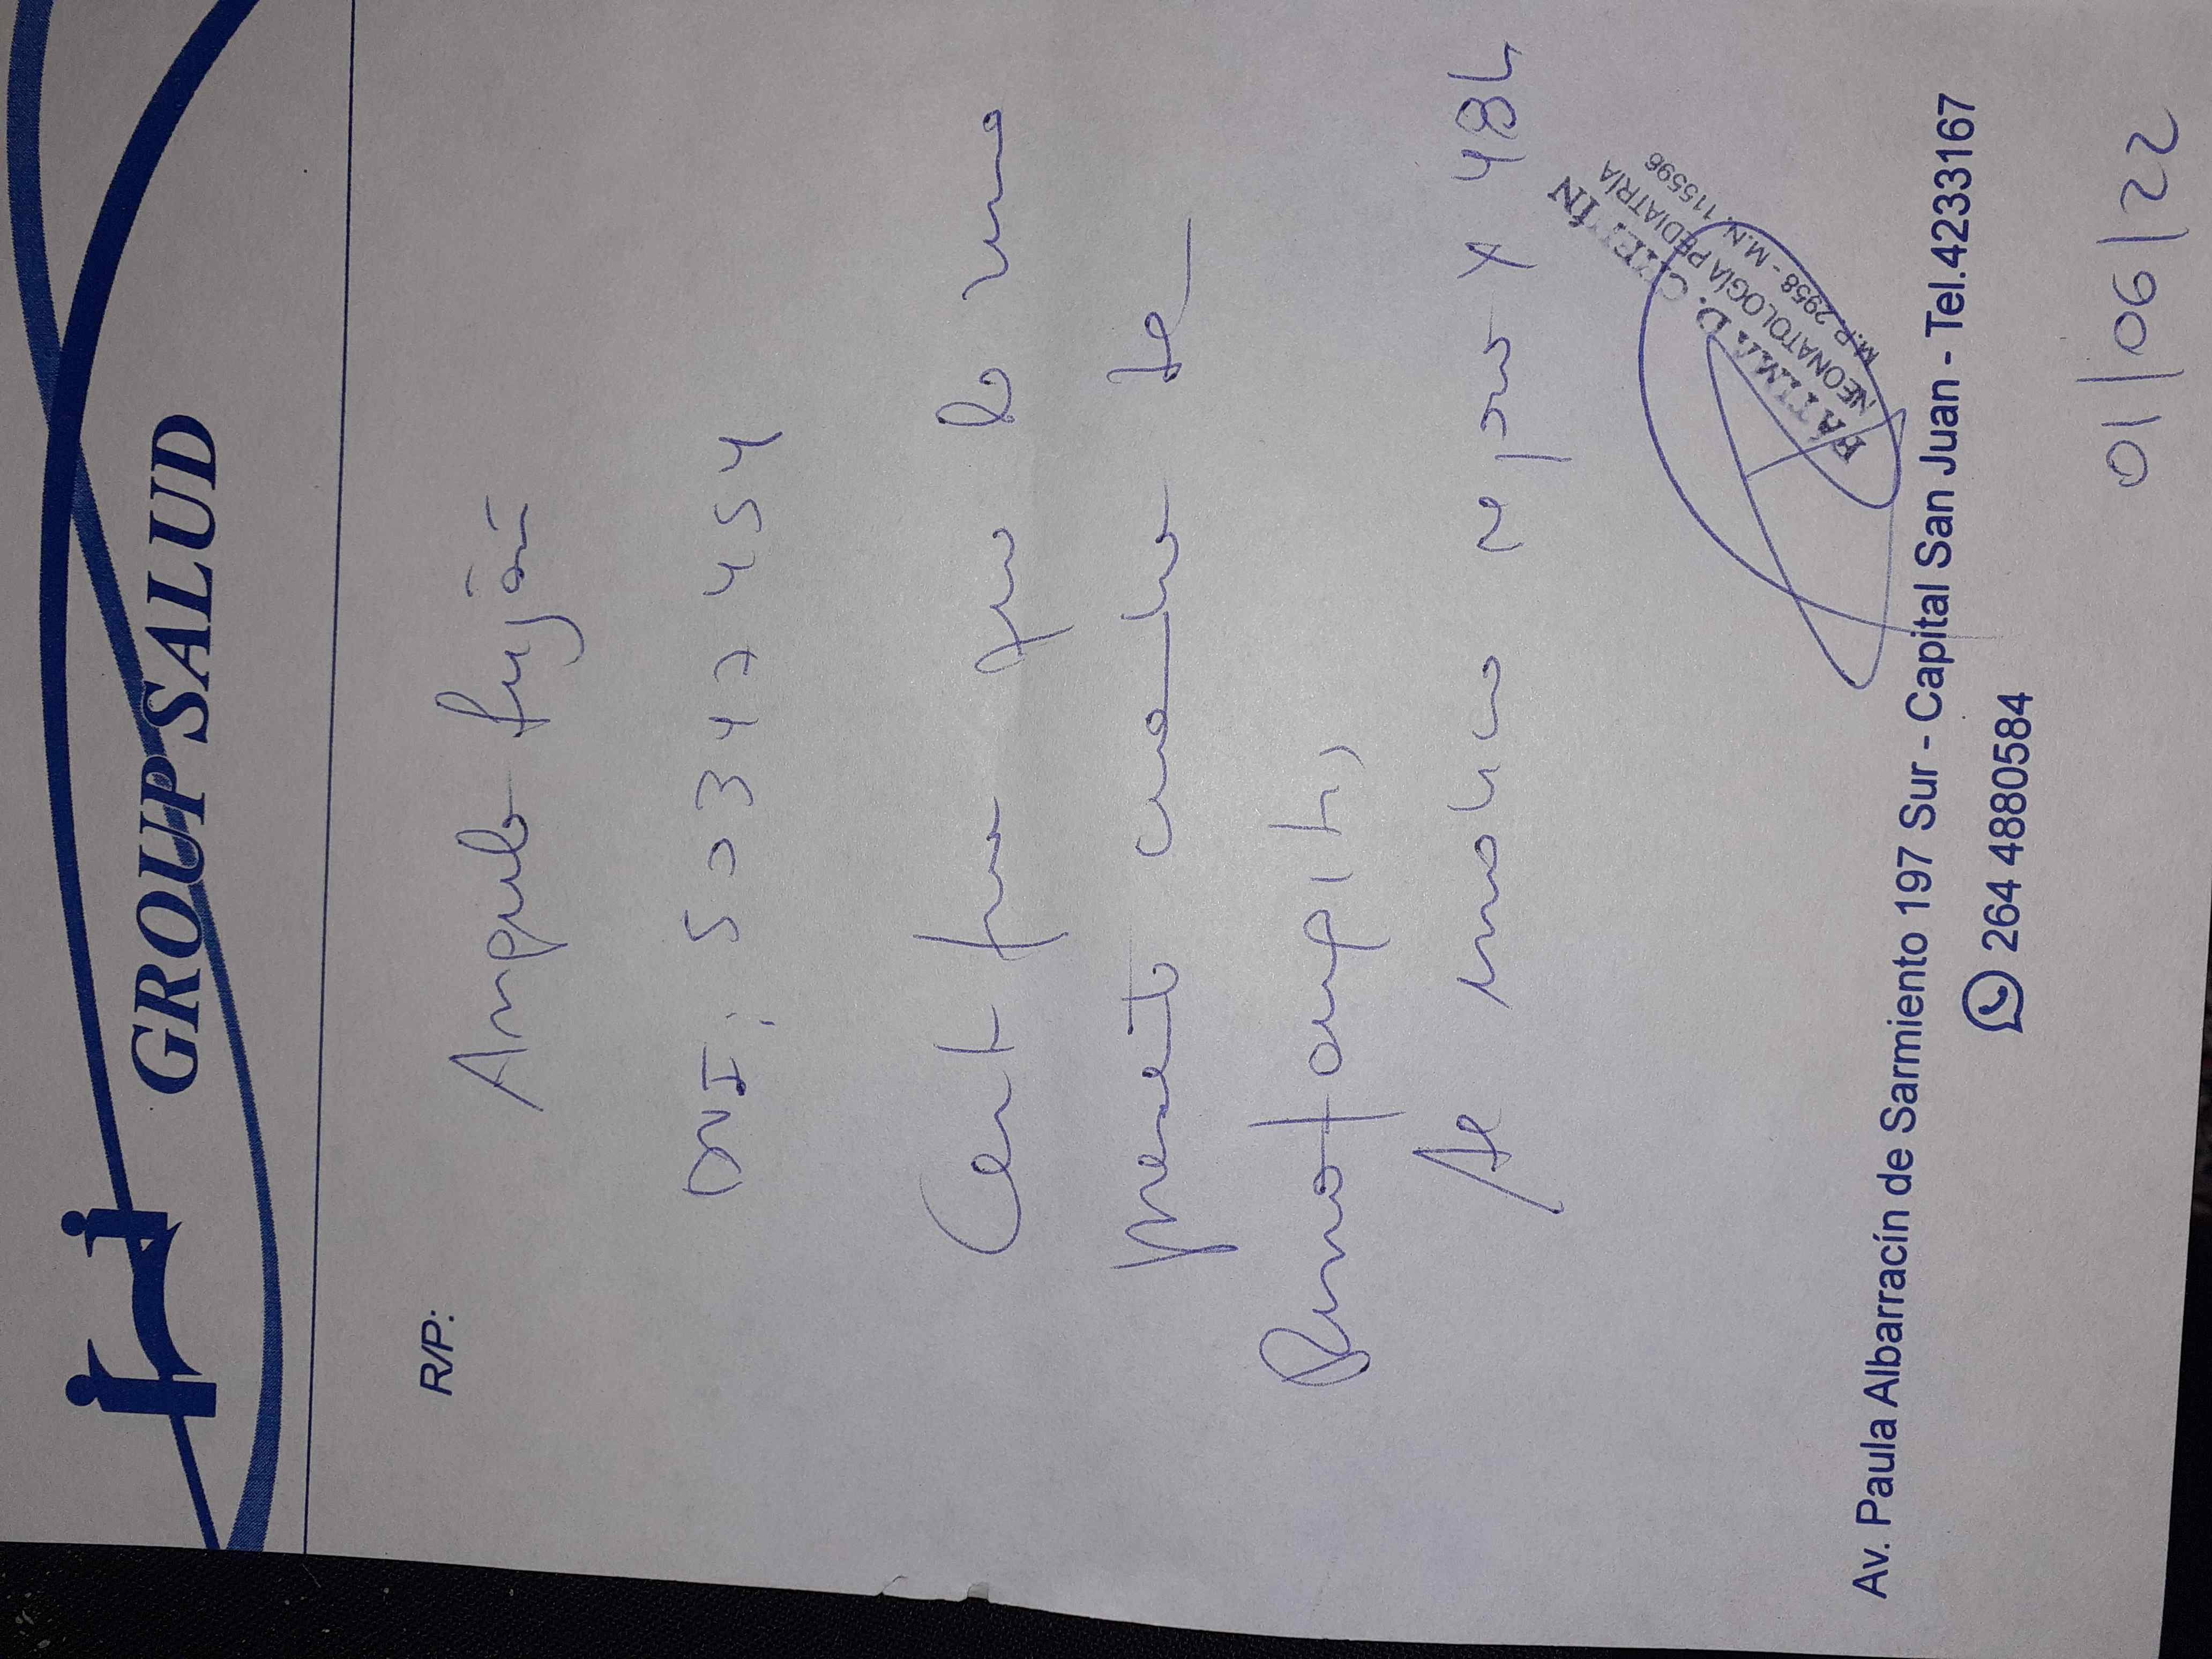 GROUP SALUD
R/P:
Angulo Luján
DNI: 50347454
Certifico que la niña
presenta cuadro de
Rinofaringitis
Se indica reposo x 48h
FÁTIMA D.
NEONATOLOGÍA PEDIATRÍA
M.P. 2958 - M.N. 115596
Av. Paula Albarracín de Sarmiento 197 Sur - Capital San Juan - Tel.4233167
264 4880584
01/06/22